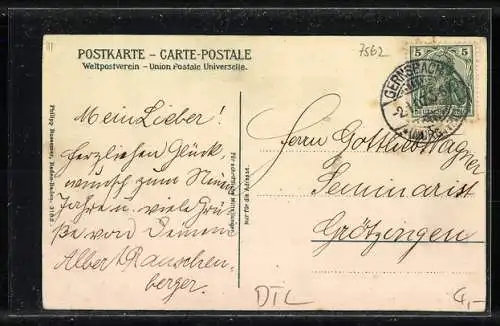 7562
POSTKARTE – CARTE-POSTALE
Weltpostverein – Union Postale Universelle.
5 5
GERNSBACH
Mein Lieber!
Herzlichen Glück,
wunsch zum Neuen
Jahre u. viele Grü
ße von Deinem
Albert Rauschen-
berger.
Herrn Gottlieb Wagner
Seminarist
Grötzingen
nur für die Adresse.
Für schriftliche Mitteilungen
Philipp Baden-Baden.
DTL
4,-